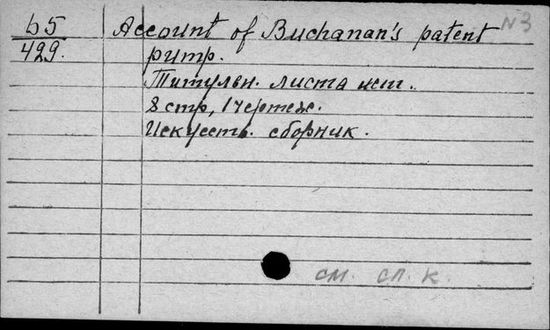 65 Account of Buchanan's patent N3
429. pump.
Титульн. листа нет.
8 стр., 1 чертеж.
Искусств. сборник.
см. сл. к.